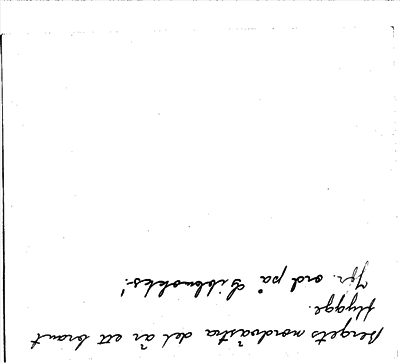 Bergets nordvästra del är ett brant
stygge.
Jfr. ord på Gibbmokks-!